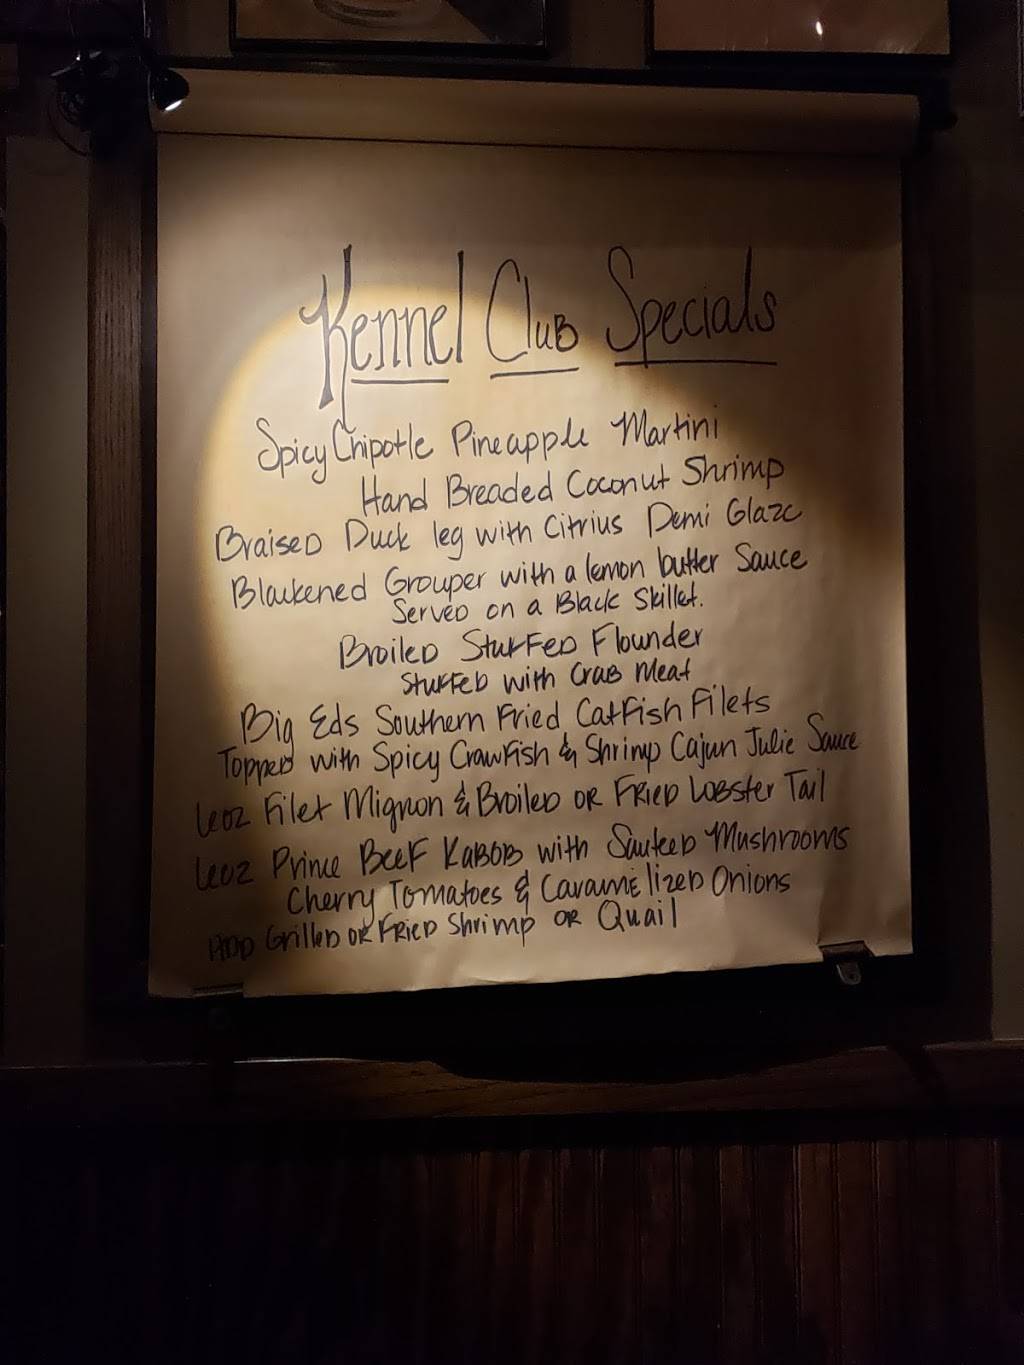 Kennel Club Specials
Spicy Chipotle Pineapple Martini
Hand Breaded Coconut Shrimp
Braised Duck leg with Citrius Demi Glaze
Blackened Grouper with a lemon butter Sauce
Served on a Black Skillet.
Broiled Stuffed Flounder
Stuffed with Crab Meat
Big Eds Southern Fried Catfish Filets
Topped with Spicy Crawfish & Shrimp Cajun Julie Sauce
6oz Filet Mignon & Broiled or Fried Lobster Tail
6oz Prince Beef Kabob with Sauteed Mushrooms
Cherry Tomatoes & Caramelized Onions
Add Grilled or Fried Shrimp or Quail